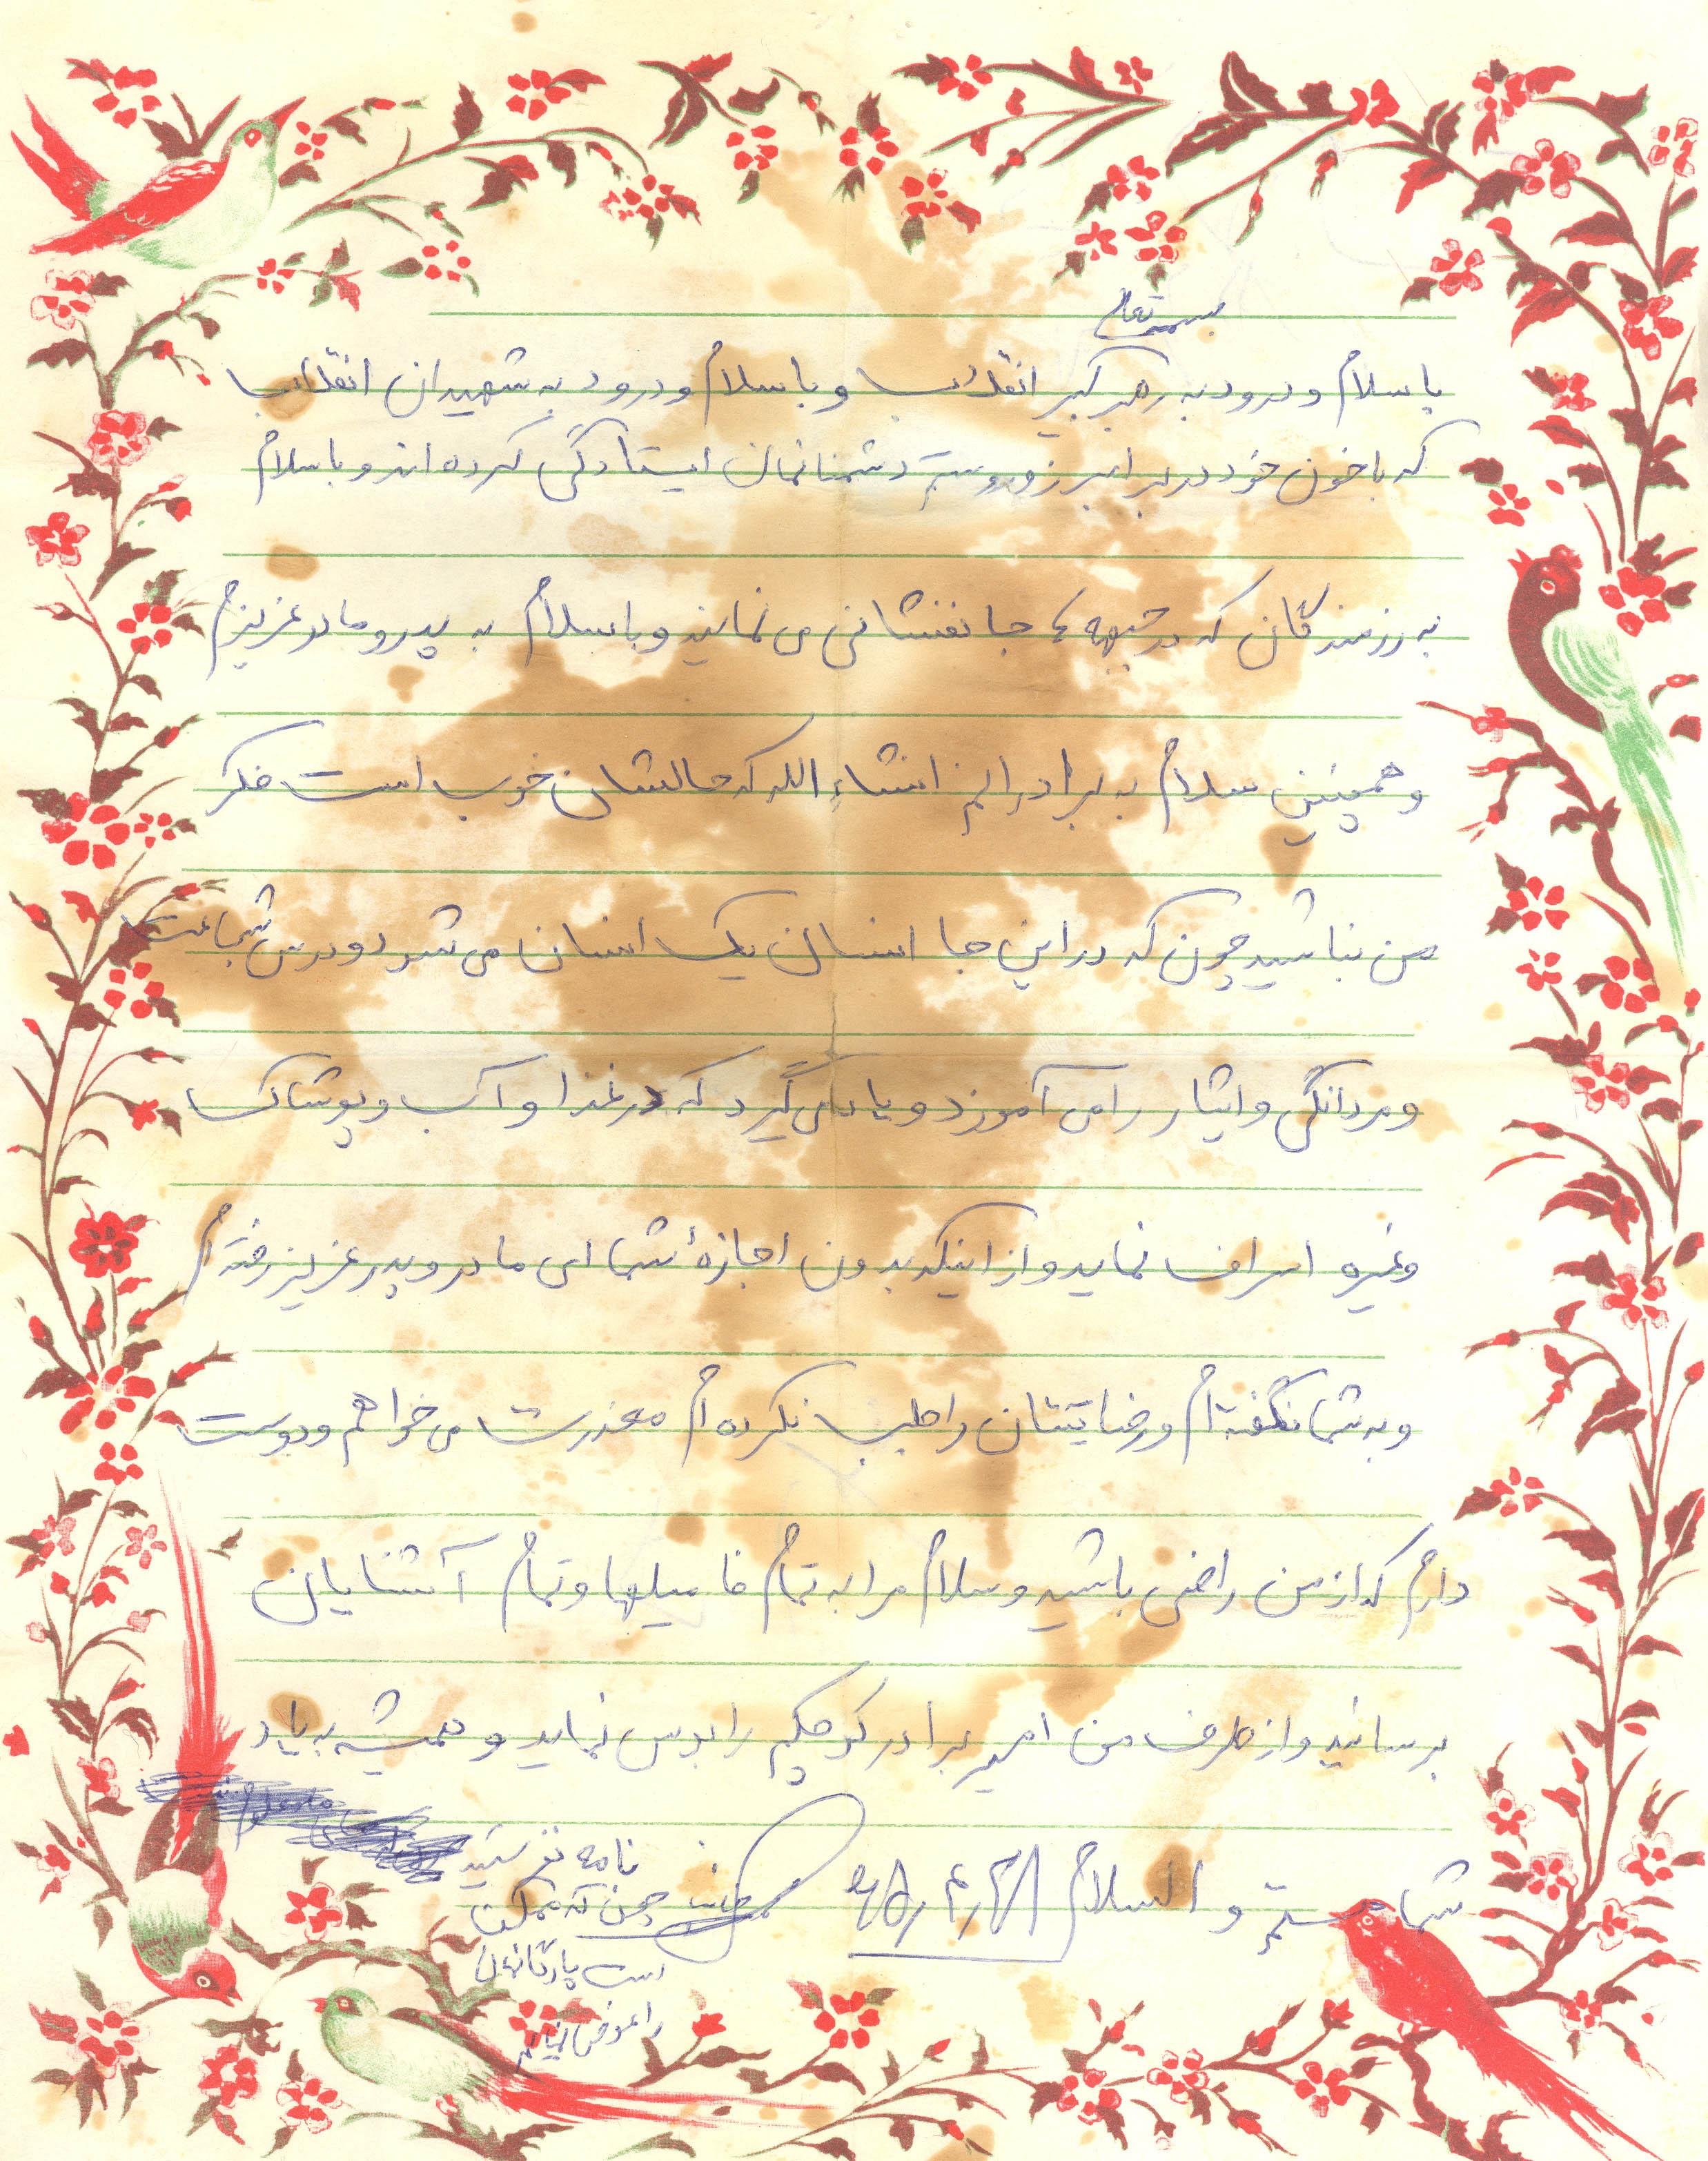 بسمه تعالی
با سلام و درود به رهبر کبیر انقلاب و با سلام و درود به شهیدان انقلاب
که با خون خود در برابر زور و ستم دشمنانمان ایستادگی کرده اند و با سلام
به رزمندگان که در جبهه ها جانفشانی می نمایند و با سلام به پدر و مادر عزیزم
و همچنین سلام به برادرانم انشاءالله که حالشان خوب است فکر
من نباشید چون که در این جا انسان یک انسان می شود و درس شجاعت
و مردانگی و ایثار را می آموزد و یاد می گیرد که در غذا و آب و پوشاک
و غیره اسراف نماید و از اینکه بدون اجازهٔ شما ای مادر و پدر عزیز رفته ام
و به شما نگفته ام و رضایتتان را طلب نکرده ام معذرت می خواهم و دوست
دارم که از من راضی باشید و سلام مرا به تمام فامیلها و تمام آشنایان
برسانید و از طرف من امیر برادر کوچکم را بوس نماید و همیشه به یاد
شما هستم و السلام
نامه نفرستید
چون که ممکن
است پادگانمان
را عوض نمایم